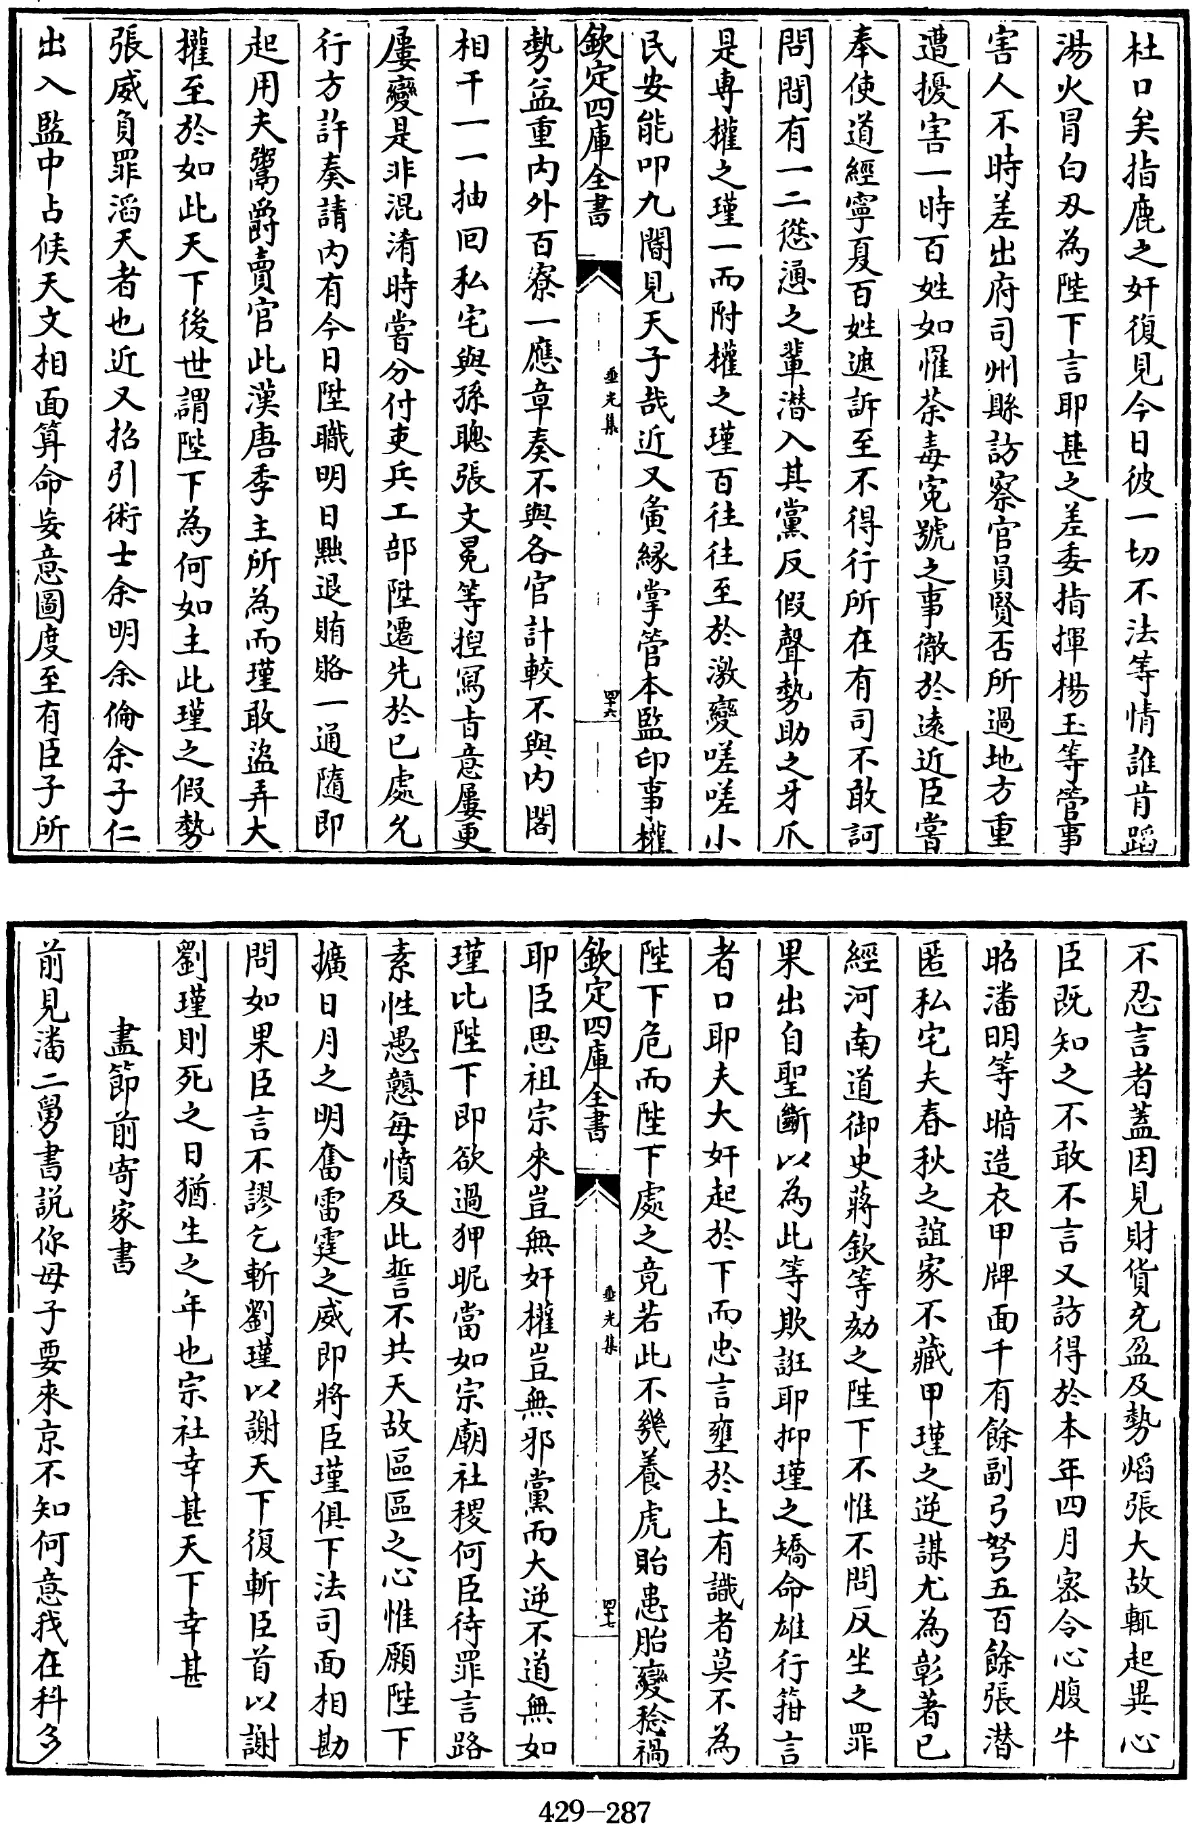 杜口矣指鹿之奸復見今日彼一切不法等情誰肯蹈
湯火冒白刃為陛下言耶甚之差委指揮楊玉等管事
害人不時差出府司州縣訪察官員賢否所過地方重
遭擾害一時百姓如罹荼毒寃號之事徹於遠近臣嘗
奉使道經寧夏百姓遮訴至不得行所在有司不敢訶
問間有一二慫慂之輩潜入其黨反假聲勢助之牙爪
是專權之瑾一而附權之瑾百往往至於激變嗟嗟小
民安能叩九閽見天子哉近又夤緣掌管本監印事權
欽定四庫全書
垂光集
四十六
勢益重内外百寮一應章奏不與各官計較不與内閣
相干一一抽回私宅與孫聰張文冕等揑寫㫖意屢更
屢變是非混淆時嘗分付吏兵工部陞遷先於已處允
行方許奏請内有今日陞職明日黜退賄賂一通隨即
起用夫鬻爵賣官此漢唐季主所為而瑾敢盜弄大
權至於如此天下後世謂陛下為何如主此瑾之假勢
張威負罪滔天者也近又招引術士余明余倫余子仁
出入監中占候天文相面算命妄意圖度至有臣子所
不忍言者蓋因見財貨充盈及勢焰張大故輒起異心
臣既知之不敢不言又訪得於本年四月宻令心腹牛
昭潘明等暗造衣甲牌面千有餘副弓弩五百餘張潜
匿私宅夫春秋之誼家不藏甲瑾之逆謀尤為彰著已
經河南道御史蔣欽等劾之陛下不惟不問反坐之罪
果出自聖斷以為此等欺誑耶抑瑾之矯命雄行箝言
者口耶夫大奸起於下而忠言壅於上有識者莫不為
陛下危而陛下處之竟若此不幾養虎貽患胎變稔禍
欽定四庫全書
垂光集
四十七
耶臣思祖宗來豈無奸權豈無邪黨而大逆不道無如
瑾比陛下即欲過狎昵當如宗廟社稷何臣待罪言路
素性愚戇每憤及此誓不共天故區區之心惟願陛下
擴日月之明奮雷霆之威即將臣瑾俱下法司面相勘
問如果臣言不謬乞斬劉瑾以謝天下復斬臣首以謝
劉瑾則死之日猶生之年也宗社幸甚天下幸甚
盡節前寄家書
前見潘二舅書説你母子要來京不知何意我在科多
429-287